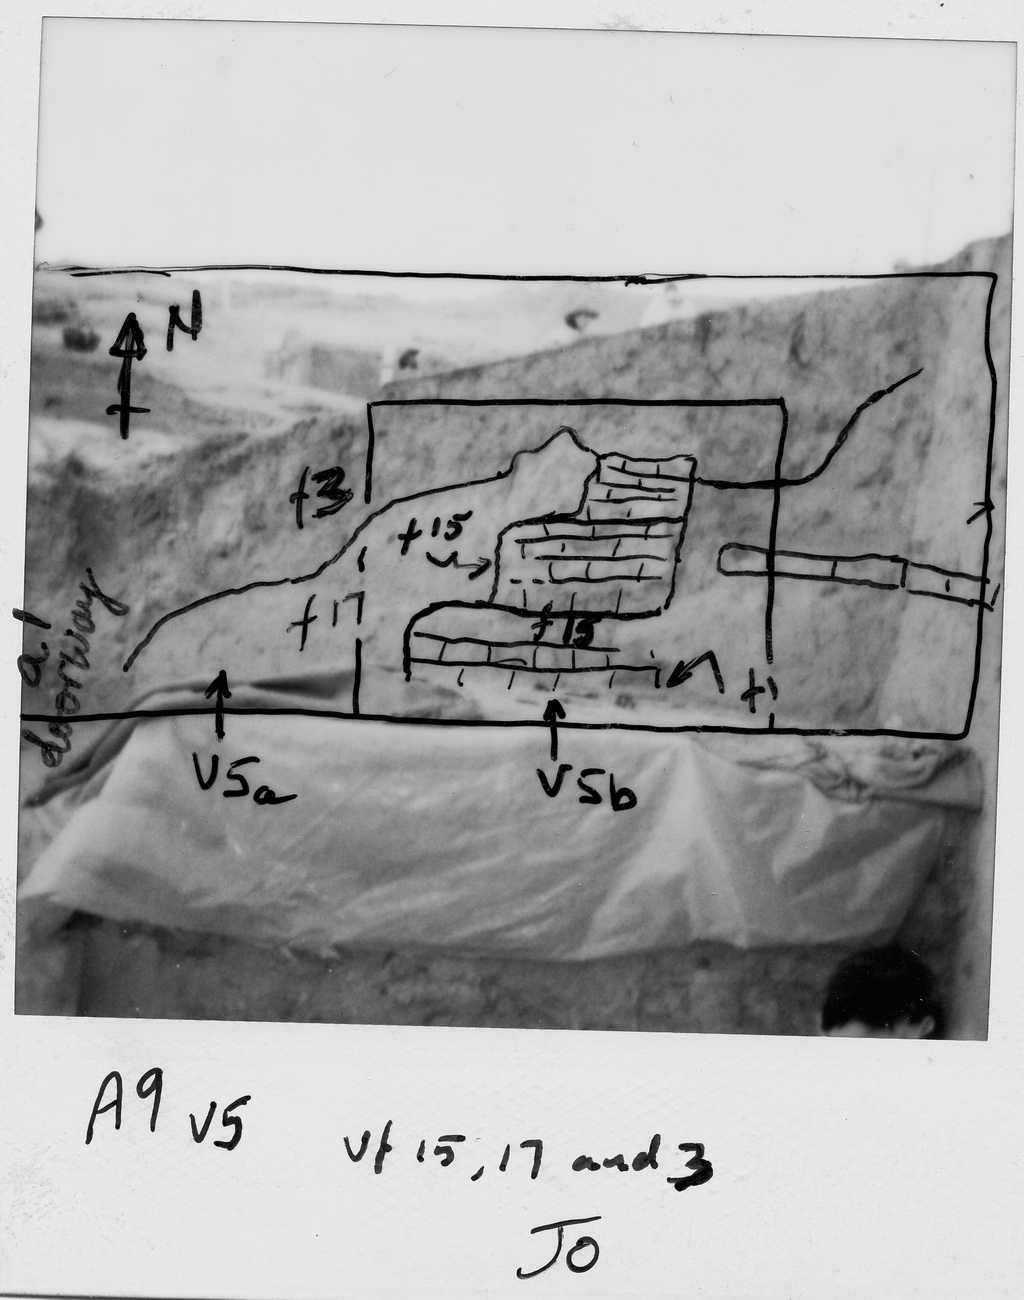 N
f3
f15
f17
a1
doorway
f15
f1
V5a
V5b
A9 V5
Vf 15, 17 and 3
JO